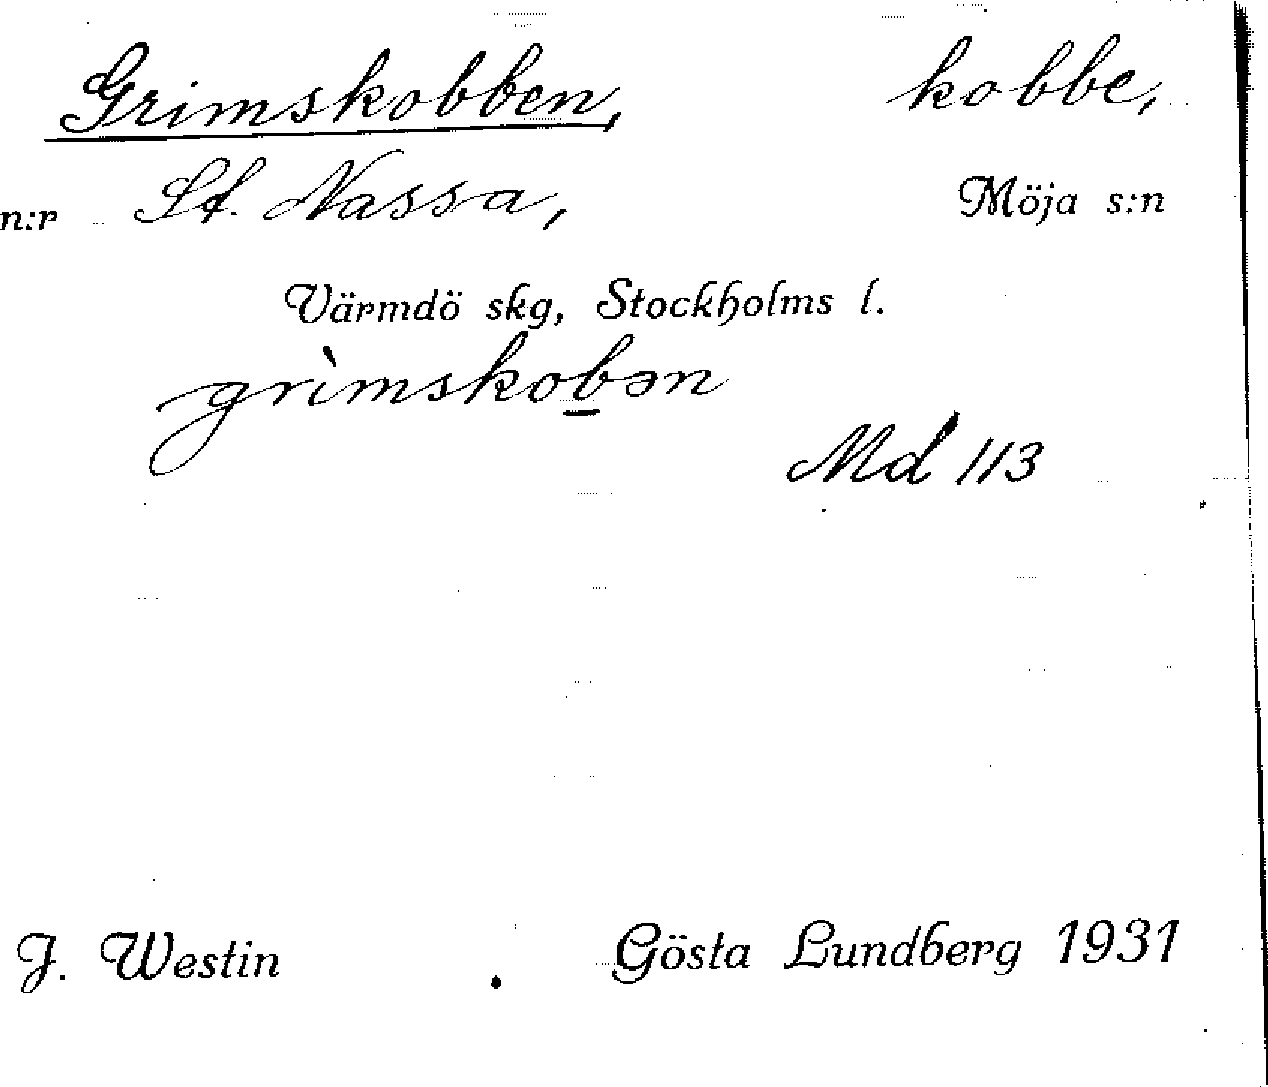 Grimskobben, kobbe,
n:r St. Nassa, Möja s:n
Värmdö skg, Stockholms l.
grìmskobən
Md 113
J. Westin Gösta Lundberg 1931